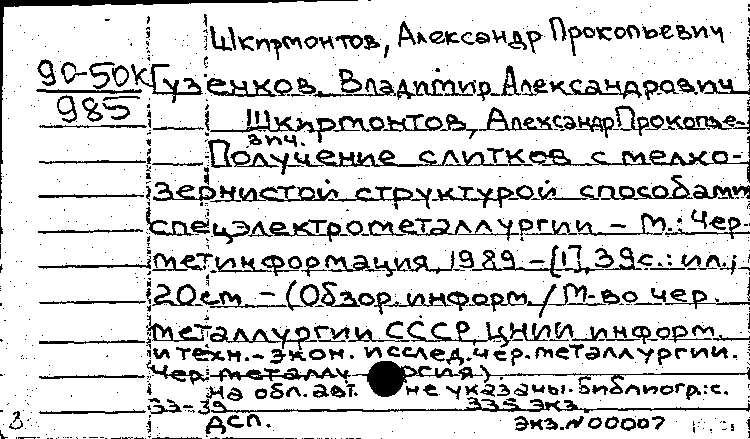 Шкирмонтов, Александр Прокопьевич
90-50к Гузенков, Владимир Александрович
985 Шкирмонтов, Александр Прокопье-
вич.
Получение слитков с мелко-
зернистой структурой способами
спецэлектрометаллургии - М.: Чер-
метинформация, 1989 - [1], 39с.: ил.;
20см. - (Обзор. информ. / М-во чер.
металлургии СССР, ЦНИИ информ.
и техн.-экон. исслед. чер. металлургии.
чер. металлургия)
на обл. авт. не указаны. Библиогр.: с.
33-39 335 экз.
ДСП. Экз. N 00007